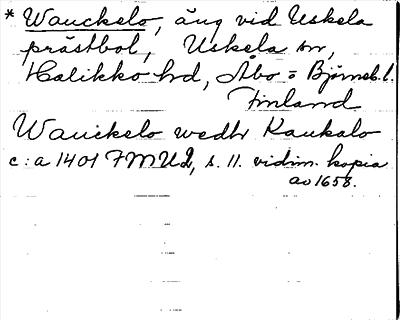 * Wauckelo, äng vid Uskela
prästbol, Uskela sn,
Halikko hd, Åbo o Björneb. l.
Finland
Wauckelo wedh Kaukalo
c:a 1401 FMU2, s. 11. vidim. kopia
av 1658.